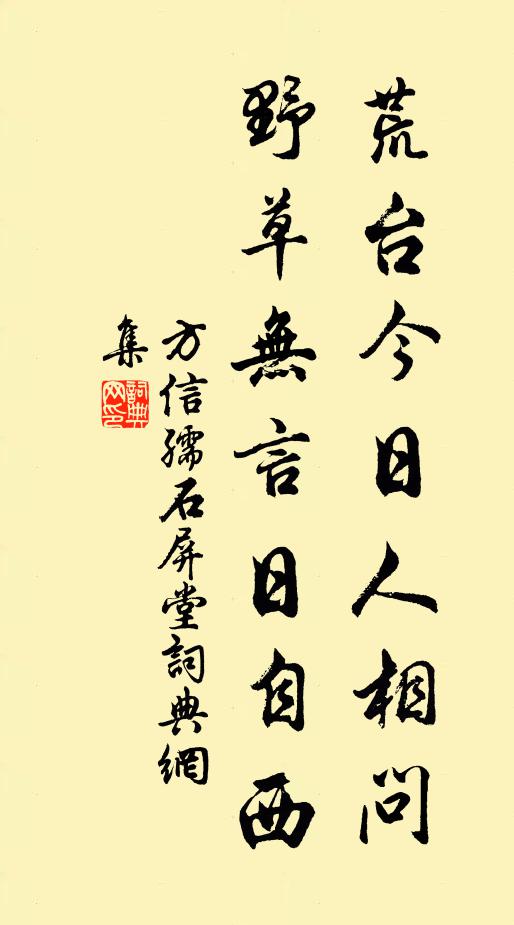 荒台今日人相問
野草無言日自西
方信孺石屏堂詞典網
集
詞典
网印